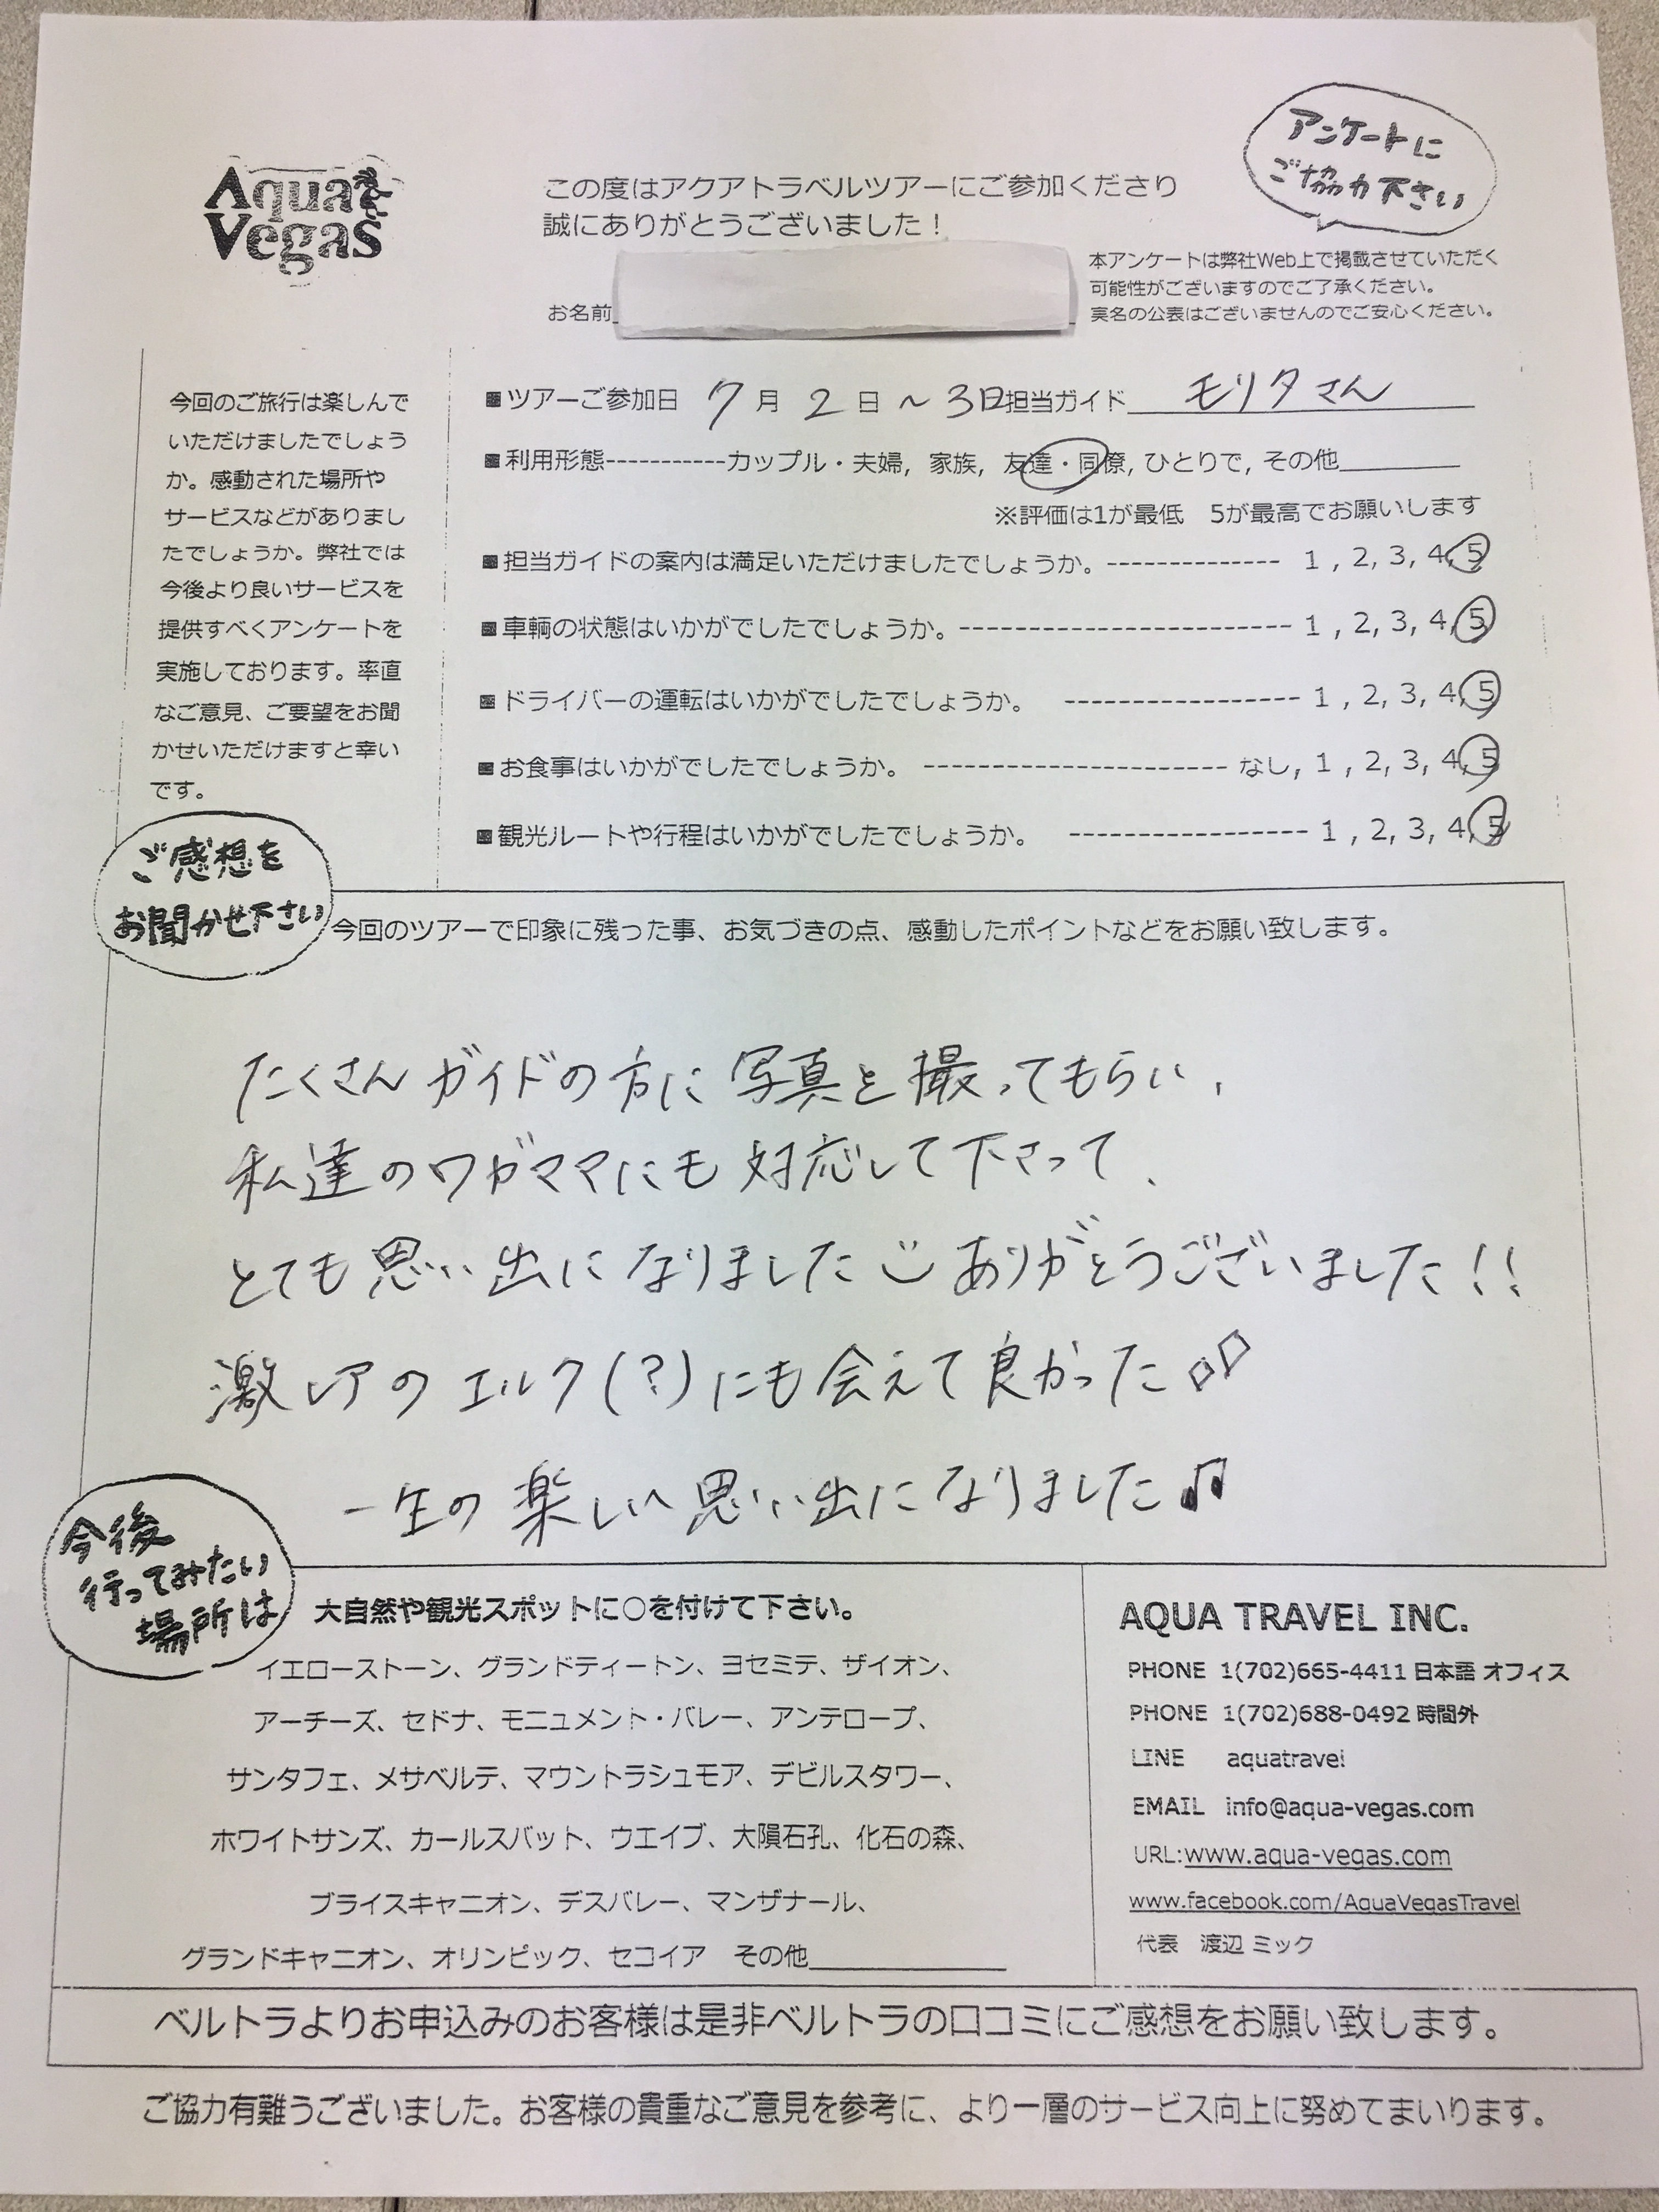 Aqua
Vegas
この度はアクアトラベルツアーにご参加くださり
誠にありがとうございました！
アンケートに
ご協力下さい
お名前
本アンケートは弊社Web上で掲載させていただく
可能性がございますのでご了承ください。
実名の公表はございませんのでご安心ください。
今回のご旅行は楽しんで
いただけましたでしょう
か。感動された場所や
サービスなどがありまし
たでしょうか。弊社では
今後より良いサービスを
提供すべくアンケートを
実施しております。率直
なご意見、ご要望をお聞
かせいただけますと幸い
です。
■ツアーご参加日 7月 2日 ～ 3日担当ガイド モリタさん
■利用形態-----------カップル・夫婦, 家族, 友達・同僚, ひとりで, その他
※評価は1が最低　5が最高でお願いします
■担当ガイドの案内は満足いただけましたでしょうか。-------------- 1 , 2, 3, 4, 5
■車輌の状態はいかがでしたでしょうか。--------------------------- 1 , 2, 3, 4, 5
■ドライバーの運転はいかがでしたでしょうか。 ------------------ 1 , 2, 3, 4, 5
■お食事はいかがでしたでしょうか。 ----------------------- なし, 1 , 2, 3, 4, 5
■観光ルートや行程はいかがでしたでしょうか。 ------------------ 1 , 2, 3, 4, 5
ご感想を
お聞かせ下さい
今回のツアーで印象に残った事、お気づきの点、感動したポイントなどをお願い致します。
たくさんガイドの方に写真を撮ってもらい、
私達のワガママにも対応して下さって、
とても思い出になりました ありがとうございました！！
激レアのエルク(?)にも会えて良かった
一生の楽しい思い出になりました♫
今後
行ってみたい
場所は
大自然や観光スポットに○を付けて下さい。
イエローストーン、グランドティートン、ヨセミテ、ザイオン、
アーチーズ、セドナ、モニュメント・バレー、アンテロープ、
サンタフェ、メサベルテ、マウントラシュモア、デビルスタワー、
ホワイトサンズ、カールスバット、ウエイブ、大隕石孔、化石の森、
ブライスキャニオン、デスバレー、マンザナール、
グランドキャニオン、オリンピック、セコイア　その他
AQUA TRAVEL INC.
PHONE 1(702)665-4411 日本語 オフィス
PHONE 1(702)688-0492 時間外
LINE aquatravel
EMAIL info@aqua-vegas.com
URL:www.aqua-vegas.com
www.facebook.com/AquaVegasTravel
代表　渡辺 ミック
ベルトラよりお申込みのお客様は是非ベルトラの口コミにご感想をお願い致します。
ご協力有難うございました。お客様の貴重なご意見を参考に、より一層のサービス向上に努めてまいります。